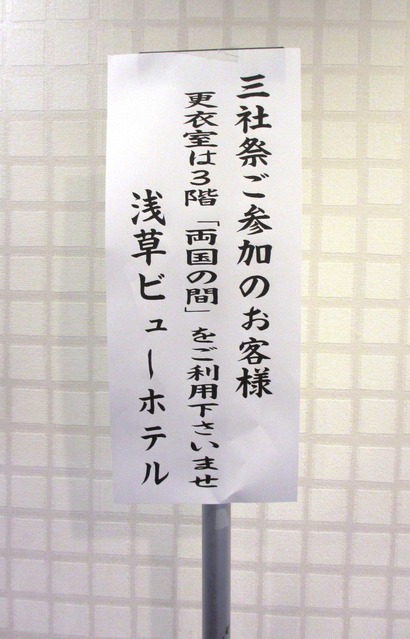 三社祭ご参加のお客様
更衣室は3階「両国の間」をご利用下さいませ
浅草ビューホテル